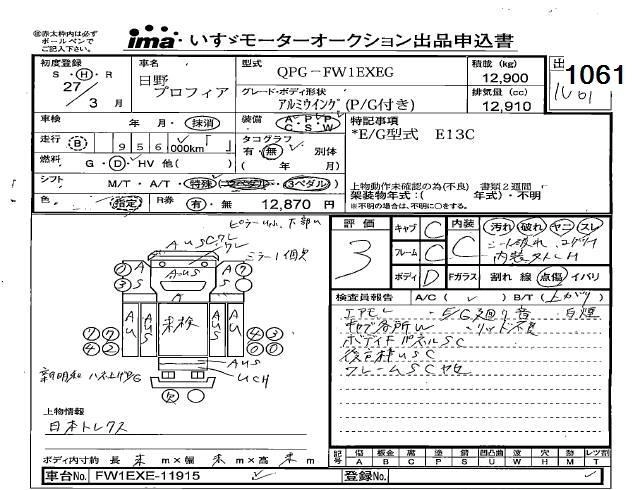 ㊟赤太枠内は必ず
ボールペンで
ご記入下さい。
ima いすゞモーターオークション出品申込書
初度登録
S・H・R
27
3 月
車名
日野
プロフィア
型式 QPG-FW1EXEG
グレード・ボディ形状
アルミウイング(P/G付き)
積載 (kg)
12,900
排気量 (cc)
12,910
出
1061
車検 年 月・抹消
装備 A P P
C S W
特記事項
*E/G型式 E13C
走行 B 956,000km
タコグラフ
有・無 別体
( 年 月)
燃料 G・D・HV 他( )
シフト M/T・A/T・特殊 (2ペダル・3ペダル)
上物動作未確認の為(不良) 書類2週間
架装物( 年式)・不明
※不明の場合は、不明に○をする。
色 指定 R券 有・無 12,870 円
評価 3
キャブ C
フレーム C
ボディ D
内装 C
汚れ 破れ ヤニ スレ
シート破れ
内装タルCH
Fガラス 割れ 線 点傷 イバリ
検査員報告 A/C ( ✓ ) B/T (上がり)
エアモレ ・E/G廻り音 白煙
キャブ各所U ・リッド不良
ボディFパネルSC
後立枠USC
フレームSCサビ
ピラーU 下部U
AUSCワレ
ワレ
ミラー1個欠
AUS
未検
AUS
UCH
上物情報
日本トレクス
ボディ内寸約 長 未 m×幅 未 m×高 未 m
記号 傷 A 板金 B 腐 C 塗 P 錆 S 凹凸曲 U 波 W 穴 H 跡 M レツ割 T
車台No. FW1EXE-11915
登録No.